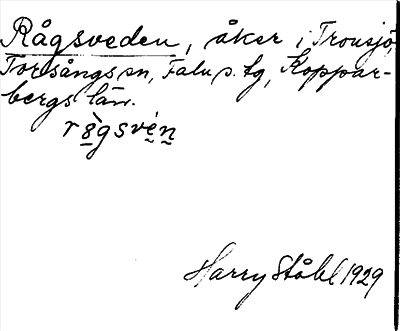 Rågsveden, åker i Tronsjö,
Torsångs sn, Falu s. tg, Koppar-
bergs län.
Harry Ståhl 1929